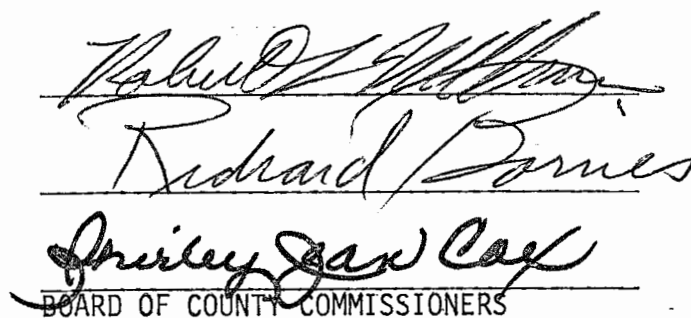 Robert L
Richard Barnes
Shirley Jean Cox
BOARD OF COUNTY COMMISSIONERS